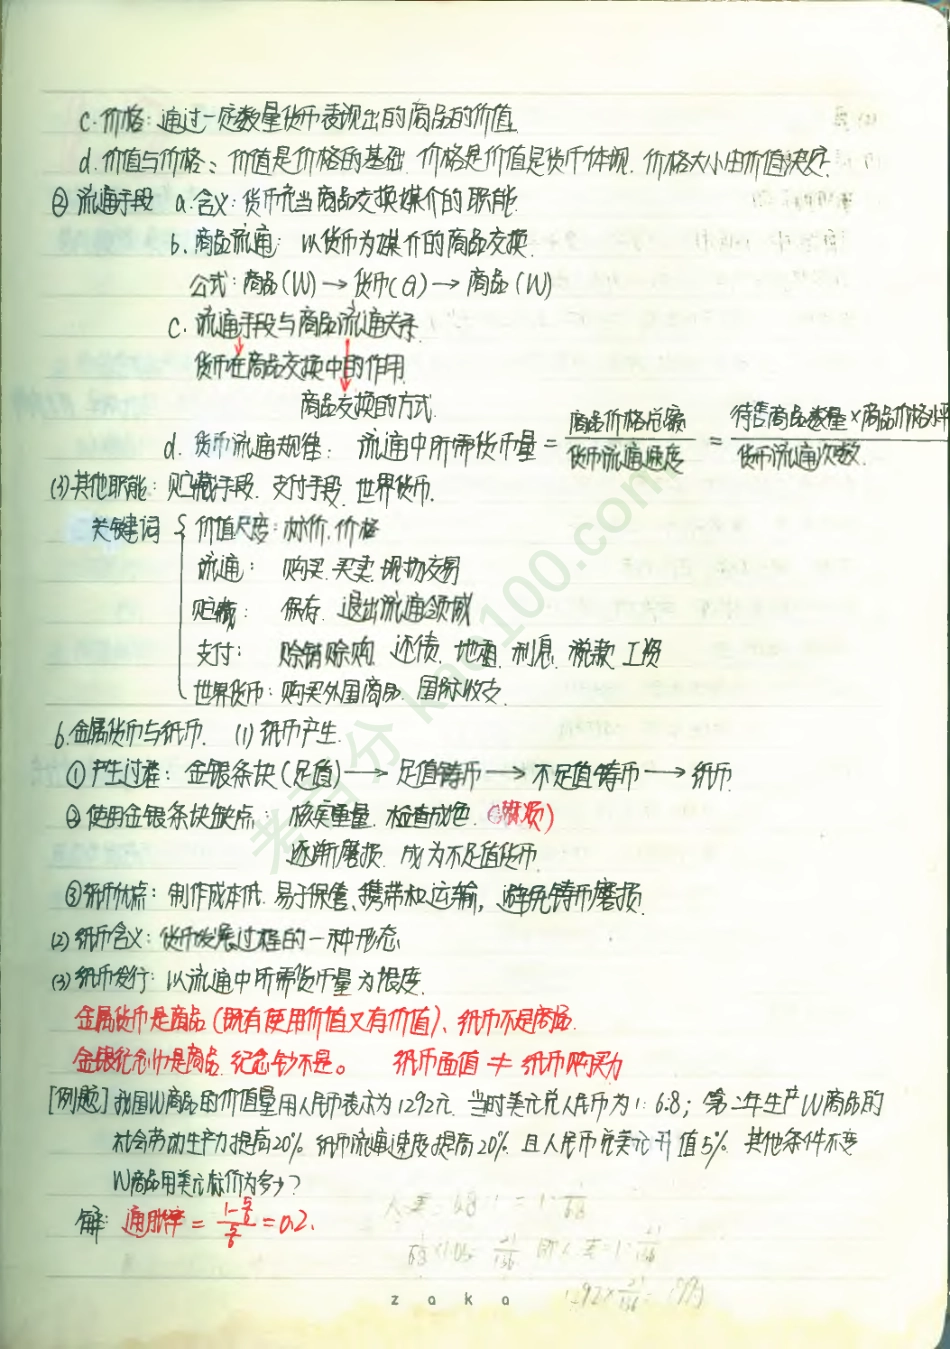 c.价格：通过一定数量货币表现出的商品的价值.
d.价值与价格：价值是价格的基础.价格是价值是货币体现.价格大小由价值决定.
②流通手段 a.含义：货币充当商品交换媒介的职能.
b.商品流通：以货币为媒介的商品交换.
公式：商品(W)→货币(G)→商品(W)
c.流通手段与商品流通关系.
货币在商品交换中的作用.
商品交换的方式.
d.货币流通规律：流通中所需货币量=商品价格总额/货币流通速度=待售商品数量×商品价格水平/货币流通次数.
(3)其他职能：贮藏手段.支付手段.世界货币.
关键词{价值尺度：标价.价格
流通：购买.买卖.现场交易
贮藏：保存.退出流通领域
支付：赊销赊购.还债.地租.利息.税款.工资
世界货币：购买外国商品.国际收支.
6.金属货币与纸币. (1)纸币产生.
①产生过程：金银条块(足值)→足值铸币→不足值铸币→纸币.
②使用金银条块缺点：核实重量.检查成色.(麻烦)
逐渐磨损.成为不足值货币.
③纸币优点：制作成本低.易于保管、携带和运输，避免铸币磨损.
(2)纸币含义：货币发展过程的一种形态
(3)纸币发行：以流通中所需货币量为限度.
金属货币是商品(既有使用价值又有价值)、纸币不是商品.
金银纪念币是商品.纪念钞不是。 纸币面值≠纸币购买力
[例题]我国W商品的价值量用人民币表示为1292元.当时美元兑人民币为1：6.8；第二年生产W商品的
社会劳动生产力提高20%.纸币流通速度提高20%.且人民币兑美元升值5%.其他条件不变
W商品用美元标价为多少？
解：通胀率=(1-5/6)/(5/6)=0.2.
z a k a
考百分 kao100.com